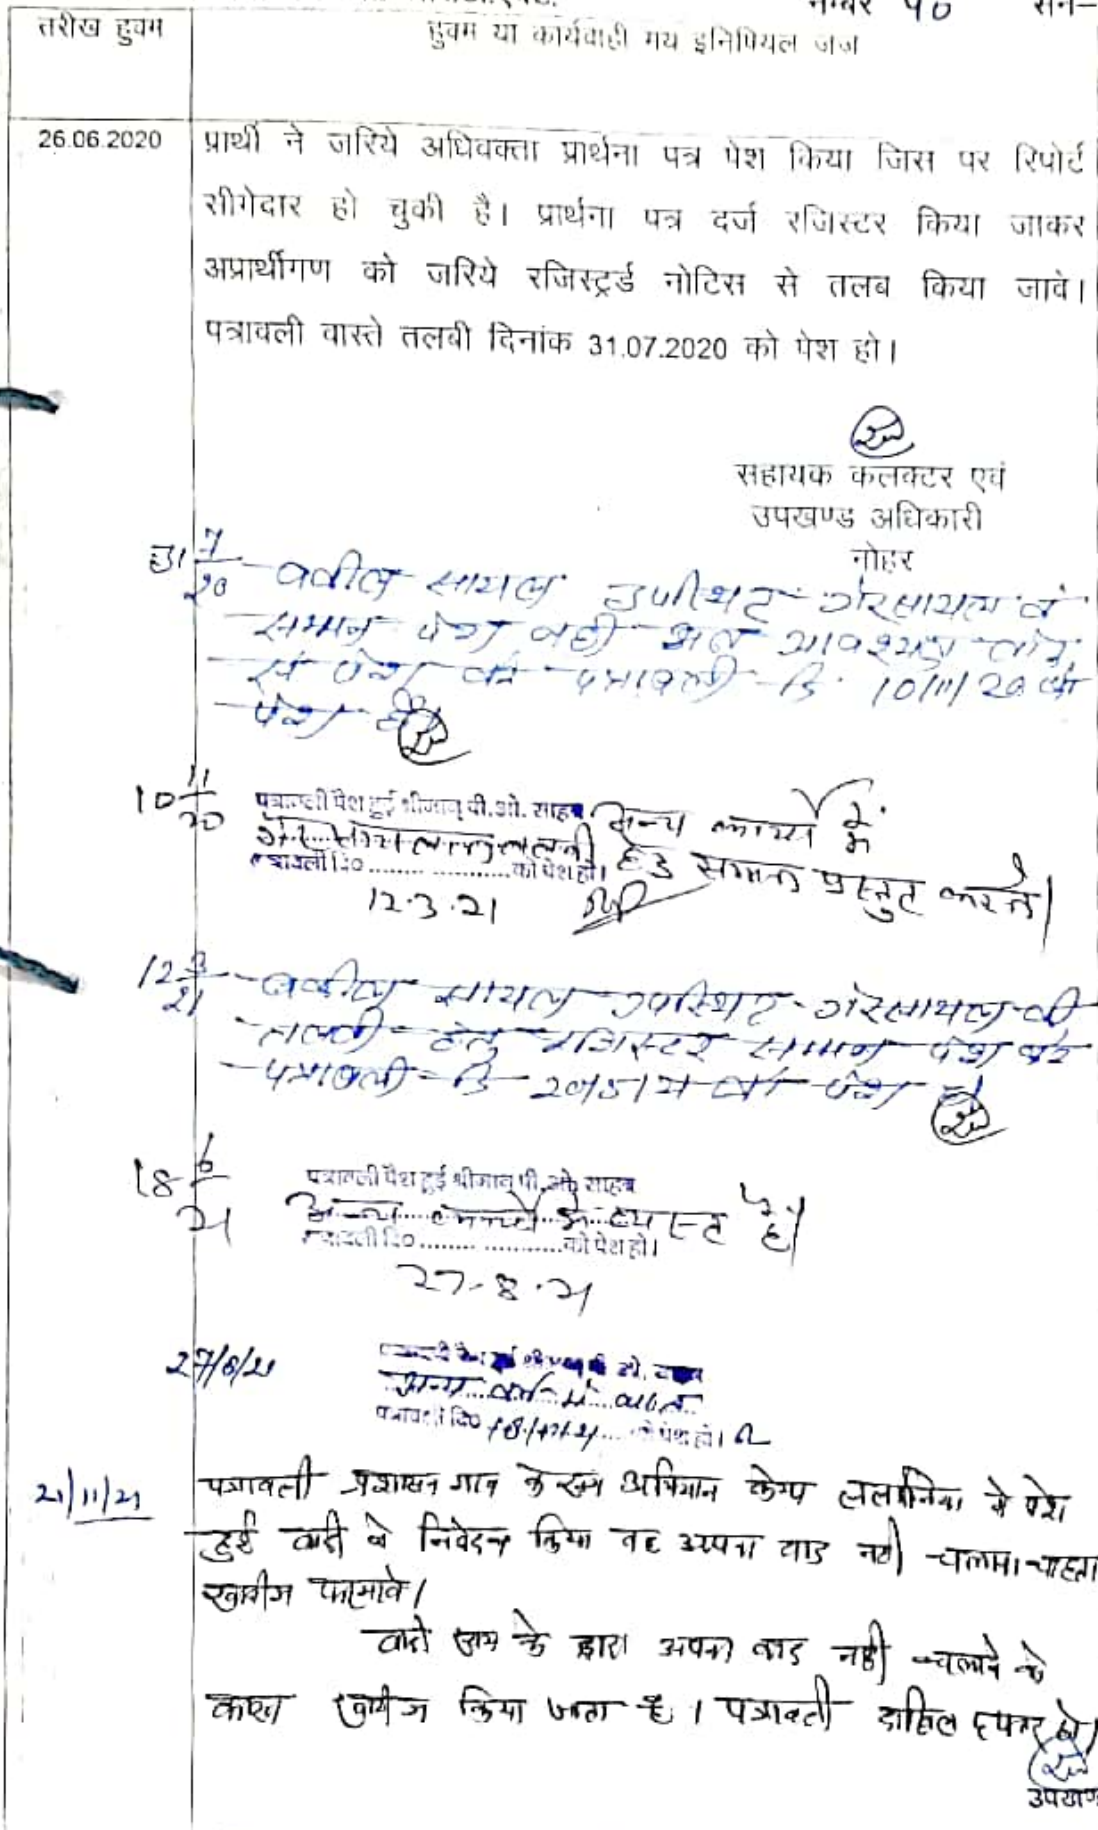 नम्बर 40 सन-
तारीख हुक्म
हुक्म या कार्यवाही मय इनिषियल जज
26.06.2020
प्रार्थी ने जरिये अधिवक्ता प्रार्थना पत्र पेश किया जिस पर रिपोर्ट
सीगेदार हो चुकी है। प्रार्थना पत्र दर्ज रजिस्टर किया जाकर
अप्रार्थीगण को जरिये रजिस्ट्रर्ड नोटिस से तलब किया जावे।
पत्रावली वास्ते तलबी दिनांक 31.07.2020 को पेश हो।
सहायक कलक्टर एवं
उपखण्ड अधिकारी
नोहर
31 7/20 वकील सायल उपस्थित गैरसायल के
सम्मन पेश नहीं अतः आवश्यक तौर
से पेश करे पत्रावली दि. 10/11/20 को
पेश हो
10 11/20 पत्रावली पेश हुई श्रीमान् पी.ओ. साहब अन्य कार्य में
हेतु सम्मन प्रस्तुत करने।
पत्रावली दि० को पेश हो।
12.3.21
12 3/21 वकील सायल उपस्थित गैरसायल की
तलबी हेतु रजिस्टर सम्मन पेश करे
पत्रावली दि 20/5/21 को पेश हो
18 6/21 पत्रावली पेश हुई श्रीमान् पी.ओ. साहब
अन्य कार्य में व्यस्त है।
पत्रावली दि० को पेश हो।
27-8-21
27/8/21
अन्य कार्य में व्यस्त
पत्रावली दि० को पेश हो।
21/11/21 पत्रावली प्रशासन गांव के संग अभियान केम्प ललानिया में पेश
हुई वादी ने निवेदन किया वह अपना वाद नहीं चलाना चाहता
खारीज फरमावे।
वादी के द्वारा अपना वाद नहीं चलाने के
कारण खारीज किया जाता है। पत्रावली दाखिल दफ्तर हो।
उपखण्ड